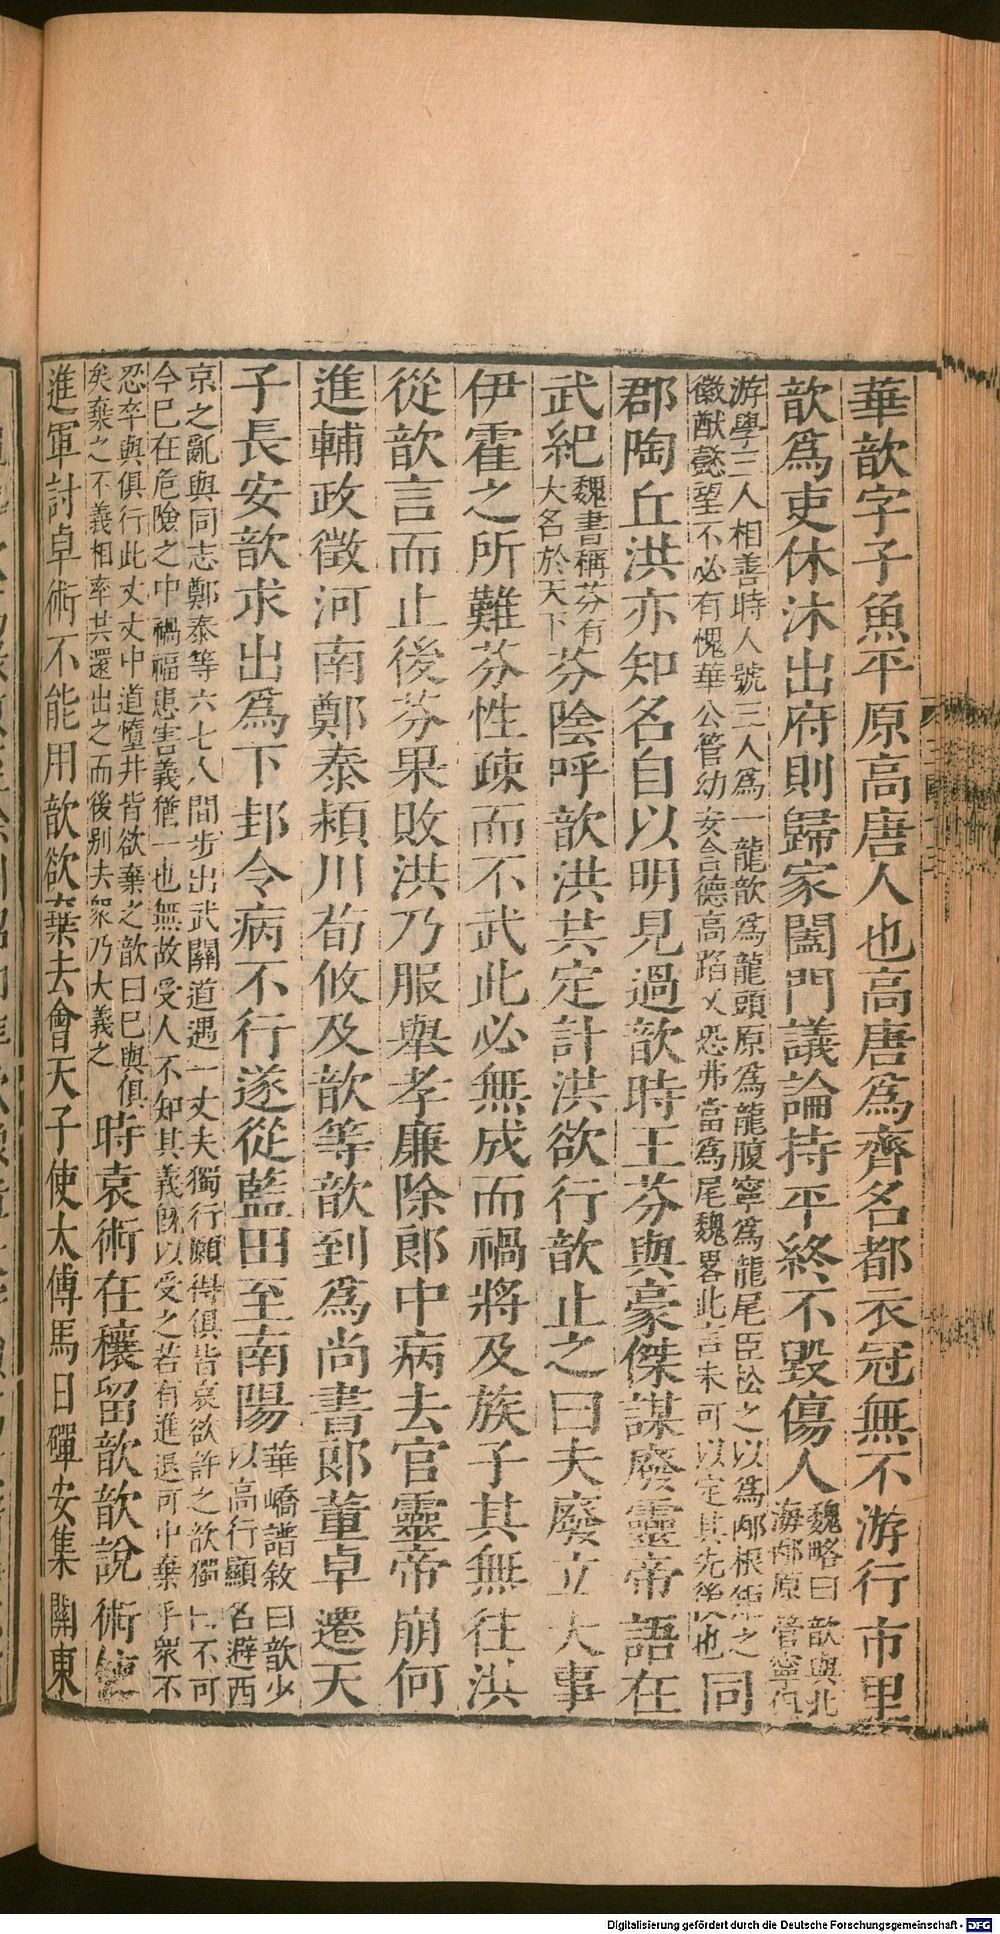 華歆字子魚平原高唐人也高唐為齊名都衣冠無不游行市里
歆為吏休沐出府則歸家闔門議論持平終不毀傷人
魏略曰歆與北
海邴原管寧俱
游學三人相善時人號三人為一龍歆為龍頭原為龍腹寧為龍尾臣松之以為邴根矩之
徽猷懿望不必有愧華公管幼安含德高蹈又恐弗當為尾魏畧此言未可以定其先後也
同
郡陶丘洪亦知名自以明見過歆時王芬與豪傑謀廢靈帝語在
武紀
魏書稱芬有
大名於天下
芬陰呼歆洪共定計洪欲行歆止之曰夫廢立大事
伊霍之所難芬性疎而不武此必無成而禍將及族子其無往洪
從歆言而止後芬果敗洪乃服舉孝廉除郎中病去官靈帝崩何
進輔政徵河南鄭泰潁川荀攸及歆等歆到為尚書郎董卓遷天
子長安歆求出為下邽令病不行遂從藍田至南陽
華嶠譜敘曰歆少
以高行顯名避西
京之亂與同志鄭泰等六七人間步出武關道遇一丈夫獨行願得俱皆哀欲許之歆獨曰不可
今已在危險之中禍福患害義猶一也無故受人不知其義既以受之若有進退可中棄乎眾不
忍卒與俱行此丈夫中道墮井皆欲棄之歆曰已與俱
矣棄之不義相率共還出之而後別去眾乃大義之
時袁術在穰留歆歆說術使
進軍討卓術不能用歆欲棄去會天子使太傅馬日磾安集關東
Digitalisierung gefördert durch die Deutsche Forschungsgemeinschaft - DFG